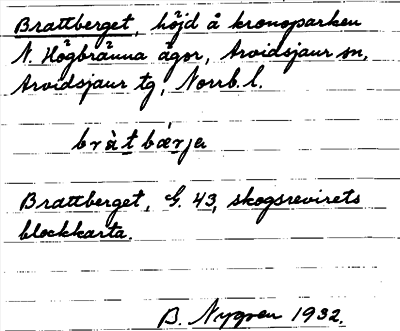 Brattberget, höjd å kronoparken
N. Högbränna ägor, Arvidsjaur sn,
Arvidsjaur tg, Norrb. l.
bràt bǽrja
Brattberget, G. 43, skogsrevirets
blockkarta.
B. Nygren 1932.